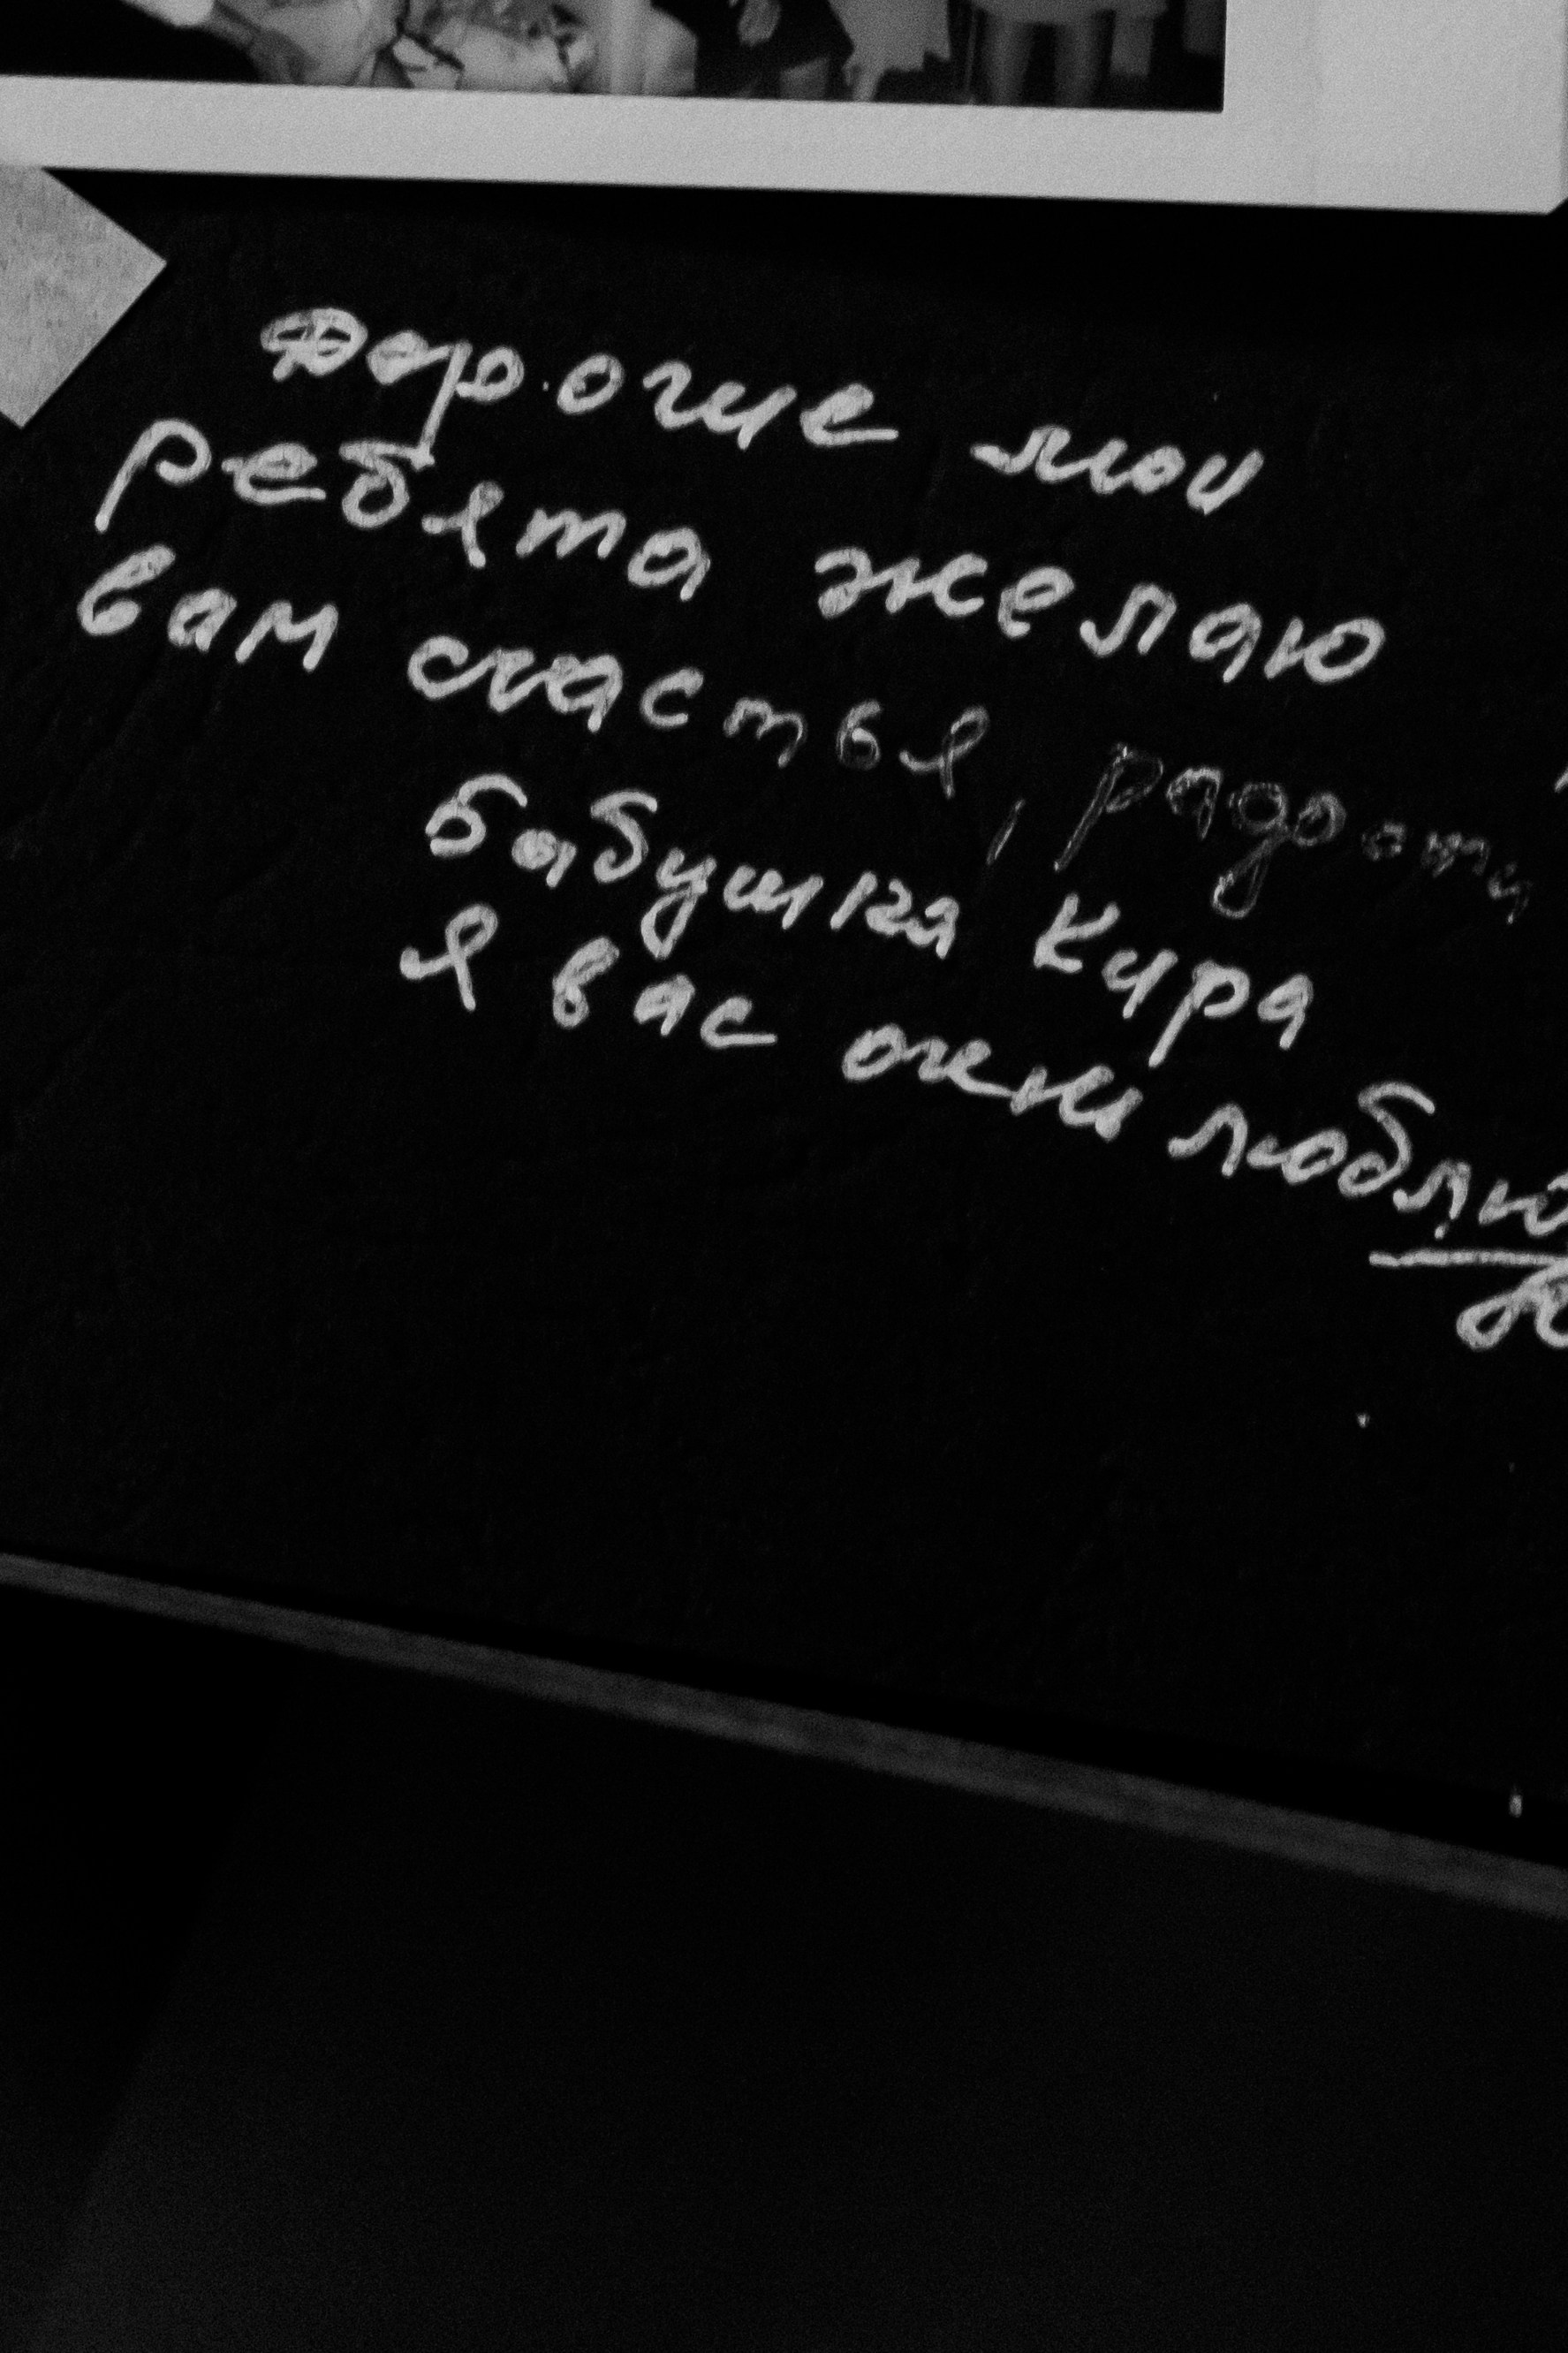 дорогие мои
ребята желаю
вам счастья, радости
бабушка Кира
я вас очень люблю